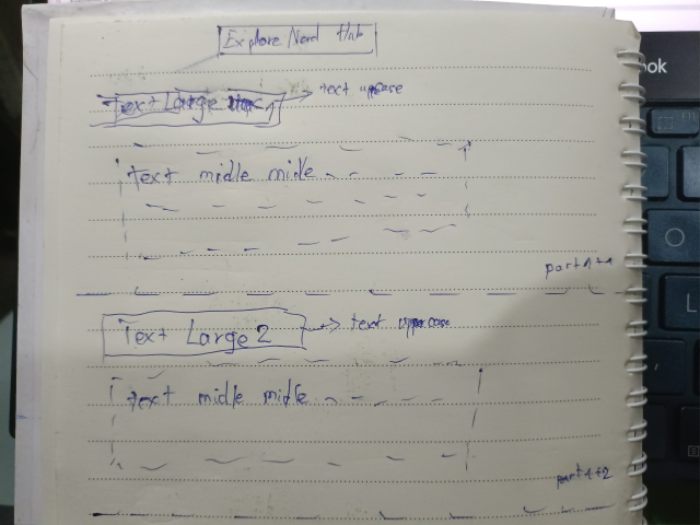 Explore Nerd Hub
Text Large 1
text uppcase
text midle midle
part 1+1
Text Large 2
text uppercase
text midle midle
part 1+2
ook
L